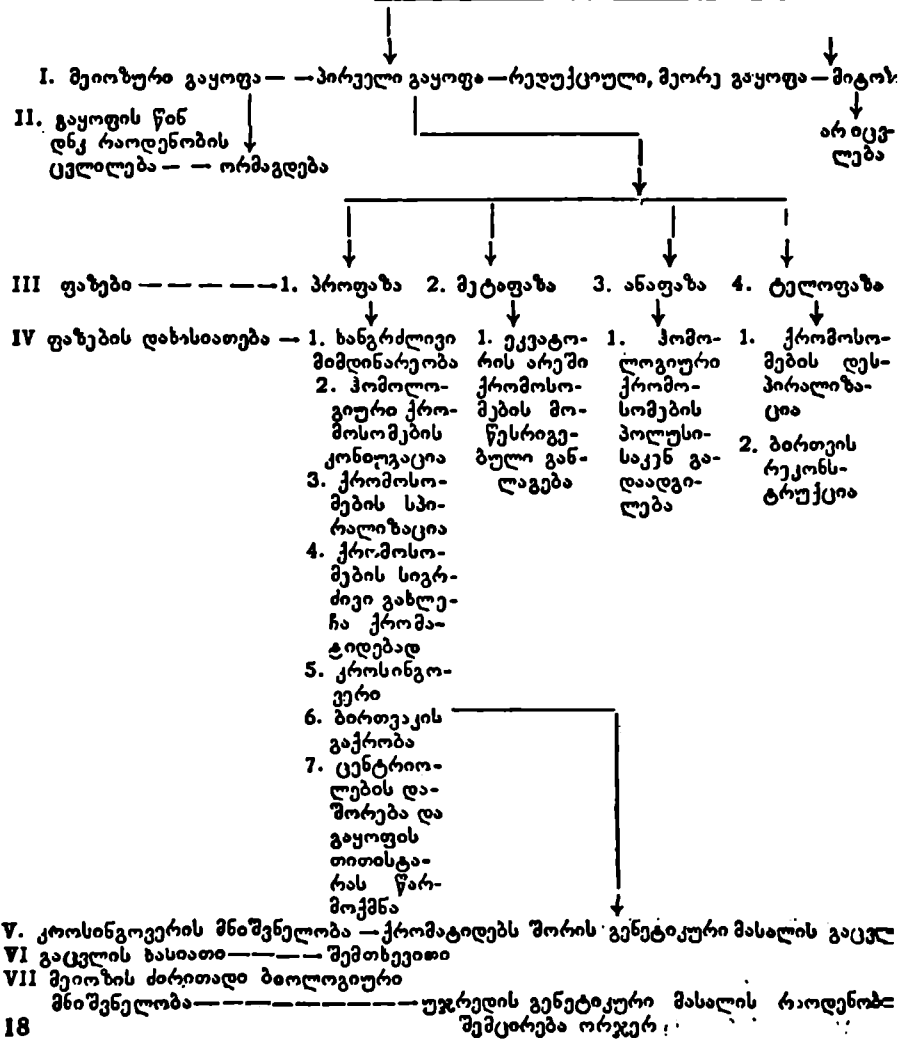 I. მეიოზური გაყოფა — →პირველი გაყოფა —რედუქციული, მეორე გაყოფა —მიტოზ
II. გაყოფის წინ
დნკ რაოდენობის
ცვლილება — → ორმაგდება
არ იცვ-
ლება
III ფაზები — — — — —1. პროფაზა 2. მეტაფაზა 3. ანაფაზა 4. ტელოფაზა
IV ფაზების დახასიათება → 1. ხანგრძლივი
მიმდინარეობა
2. ჰომოლო-
გიური ქრო-
მოსომების
კონიუგაცია
3. ქრომოსო-
მების სპი-
რალიზაცია
4. ქრომოსო-
მების სიგრ-
ძივი გახლე-
ჩა ქრომა-
ტიდებად
5. კროსინგო-
ვერი
6. ბირთვაკის
გაქრობა
7. ცენტრიო-
ლების და-
შორება და
გაყოფის
თითისტა-
რას წარ-
მოქმნა
1. ეკვატო-
რის არეში
ქრომოსო-
მების მო-
წესრიგე-
ბული გან-
ლაგება
1. ჰომო-
ლოგიური
ქრომო-
სომების
პოლუსი-
საკენ გა-
დაადგი-
ლება
1. ქრომოსო-
მების დეს-
პირალიზა-
ცია
2. ბირთვის
რეკონს-
ტრუქცია
V. კროსინგოვერის მნიშვნელობა →ქრომატიდებს შორის გენეტიკური მასალის გაცვლ
VI გაცვლის ხასიათი— — — — შემთხვევითი
VII მეიოზის ძირითადი ბიოლოგიური
მნიშვნელობა— — — — — — — — →უჯრედის გენეტიკური მასალის რაოდენობ
18 შემცირება ორჯერ